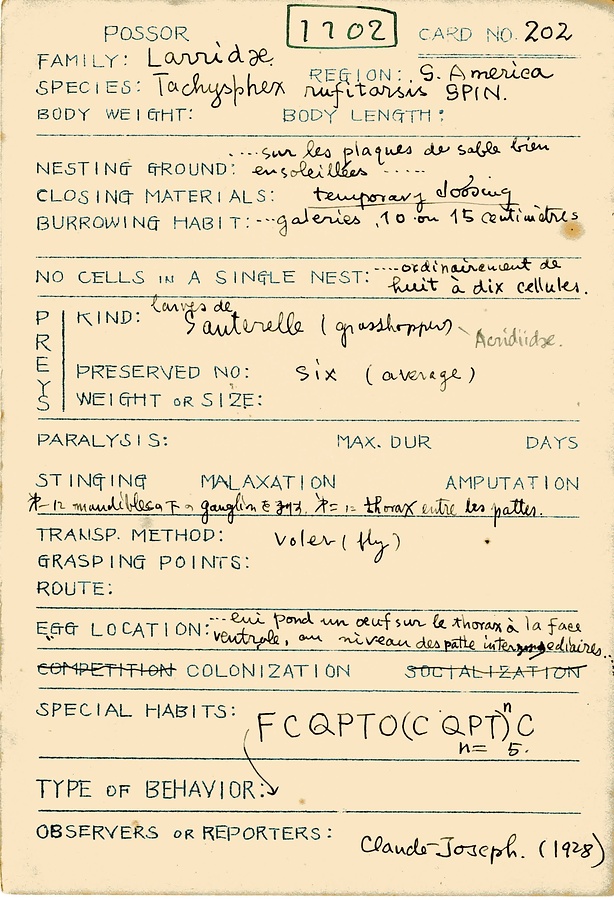 POSSOR 1702 CARD NO. 202
FAMILY: Larridæ.
REGION: S. America
SPECIES: Tachysphex rufitarsis SPIN.
BODY WEIGHT: BODY LENGTH:
....sur les plaques de sable bien
NESTING GROUND: ensoleillées .....
CLOSING MATERIALS: temporary closing
BURROWING HABIT: ...galeries, 10 ou 15 centimètres
NO CELLS IN A SINGLE NEST: ....ordinairement de
huit à dix cellules.
PREYS
larves de
KIND: Sauterelle (grasshopper) Acridiidæ.
PRESERVED NO: six (average)
WEIGHT OR SIZE:
PARALYSIS: MAX. DUR DAYS
STINGING MALAXATION AMPUTATION
mandibles ganglion thorax entre les pattes.
TRANSP. METHOD: voler (fly)
GRASPING POINTS:
ROUTE:
EGG LOCATION: ...pond un œuf sur le thorax à la face
ventrale, au niveau des patte intermediaires..
COMPETITION COLONIZATION SOCIALIZATION
SPECIAL HABITS: FCQPTO(C QPT)ⁿC
n= 5.
TYPE OF BEHAVIOR:
OBSERVERS OR REPORTERS: Claude-Joseph. (1928)